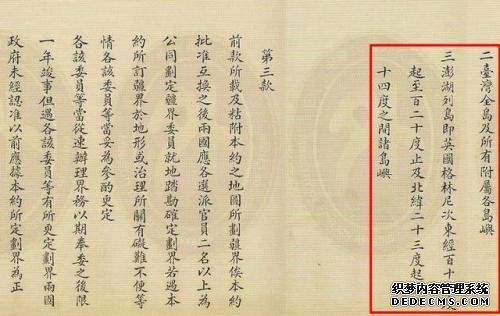 二臺灣全島及所有附屬各島嶼
三澎湖列島即英國格林尼次東經百十
起至百二十度止及北緯二十三度起
十四度之間諸島嶼
第三款
前款所載及粘附本約之地圖所劃疆界俟本約
批准互換之後兩國應各選派官員二名以上為
公同劃定疆界委員就地踏勘確定劃界若遇本
約所訂疆界於地形或治理所關有礙難不便等
情各該委員等當妥為參酌更定
各該委員等當從速辦理界務以期奉委之後限
一年竣事但遇各該委員等有所更定劃界兩國
政府未經認准以前應據本約所定劃界為正
织梦内容管理系统
DEDECMS.COM